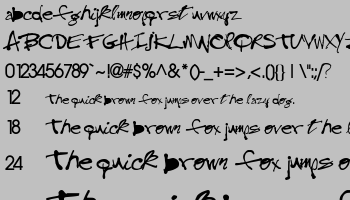 abcdefghijklmnopqrstuvwxyz
ABCDEFGHIJKLMNOPQRSTUVWXYZ
0123456789`~!@#$%^&*()-_+=>,<.(){} | \":;/?
12 The quick brown fox jumps over the lazy dog.
18 The quick brown fox jumps over the l
24 The quick brown fox jumps o